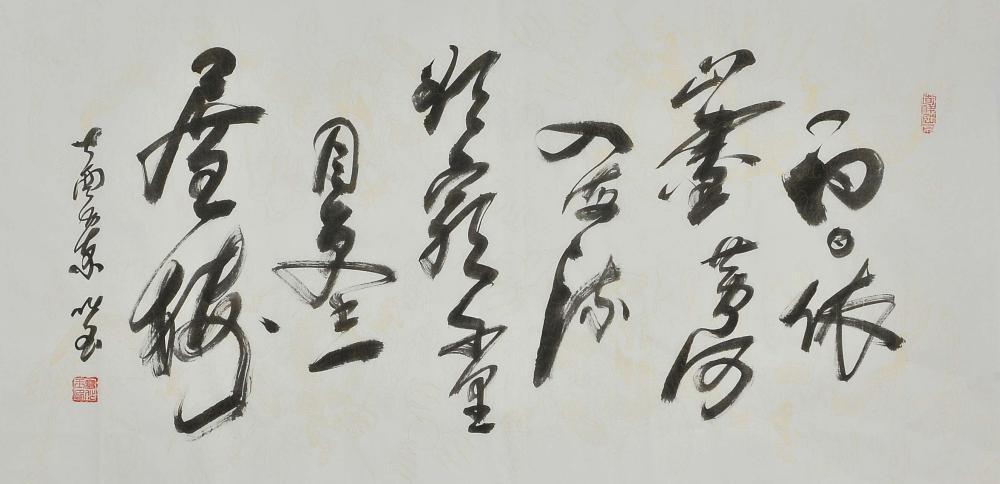 白日依
山盡黄河
入海流
欲窮千里
目更上一
層樓